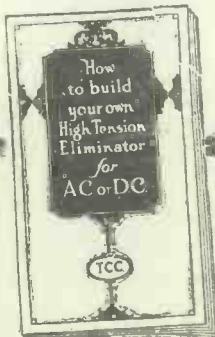 How
to build
your own
High Tension
Eliminator
for
AC or DC
T.C.C.